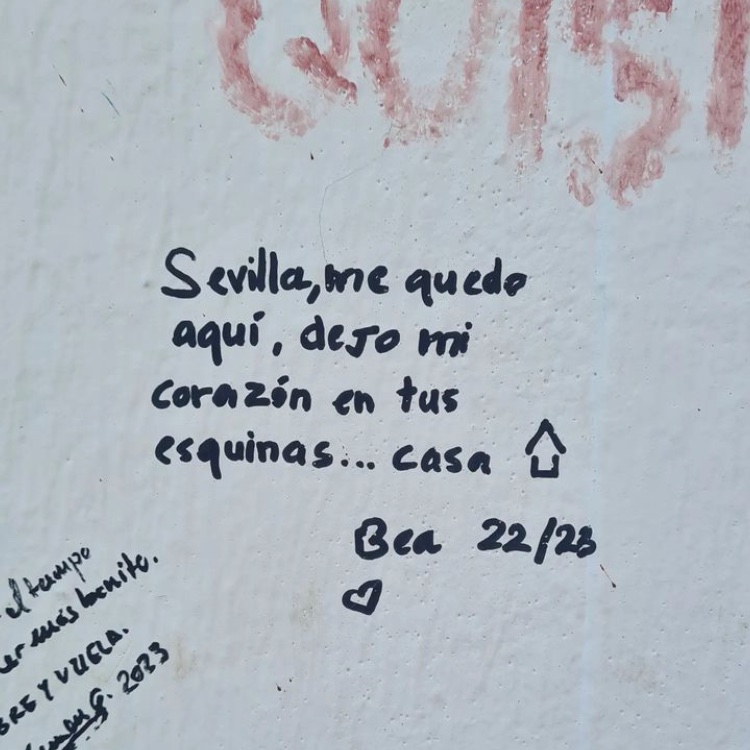 Sevilla, me quedo
aquí, dejo mi
corazón en tus
esquinas... casa
Bea 22/23
el tiempo
más bonito.
Y VUELA.
G. 2023